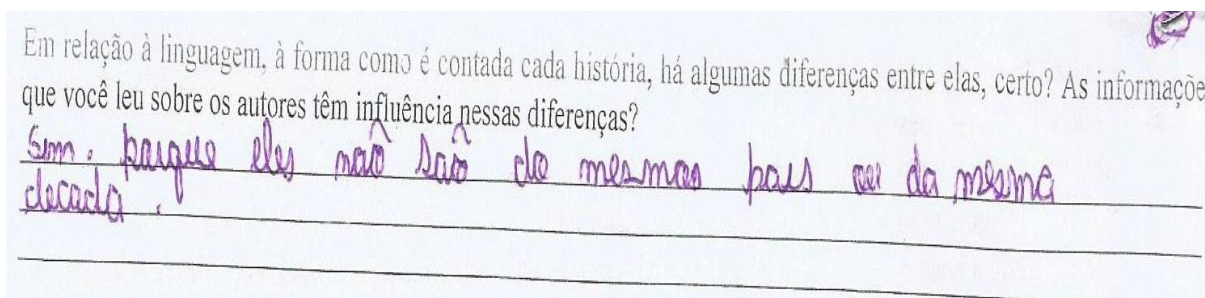 Em relação à linguagem, à forma como é contada cada história, há algumas diferenças entre elas, certo? As informaçõe
que você leu sobre os autores têm influência nessas diferenças?
Sim. porque eles naõ saõ do mesmo pais ou da mesma
decada.